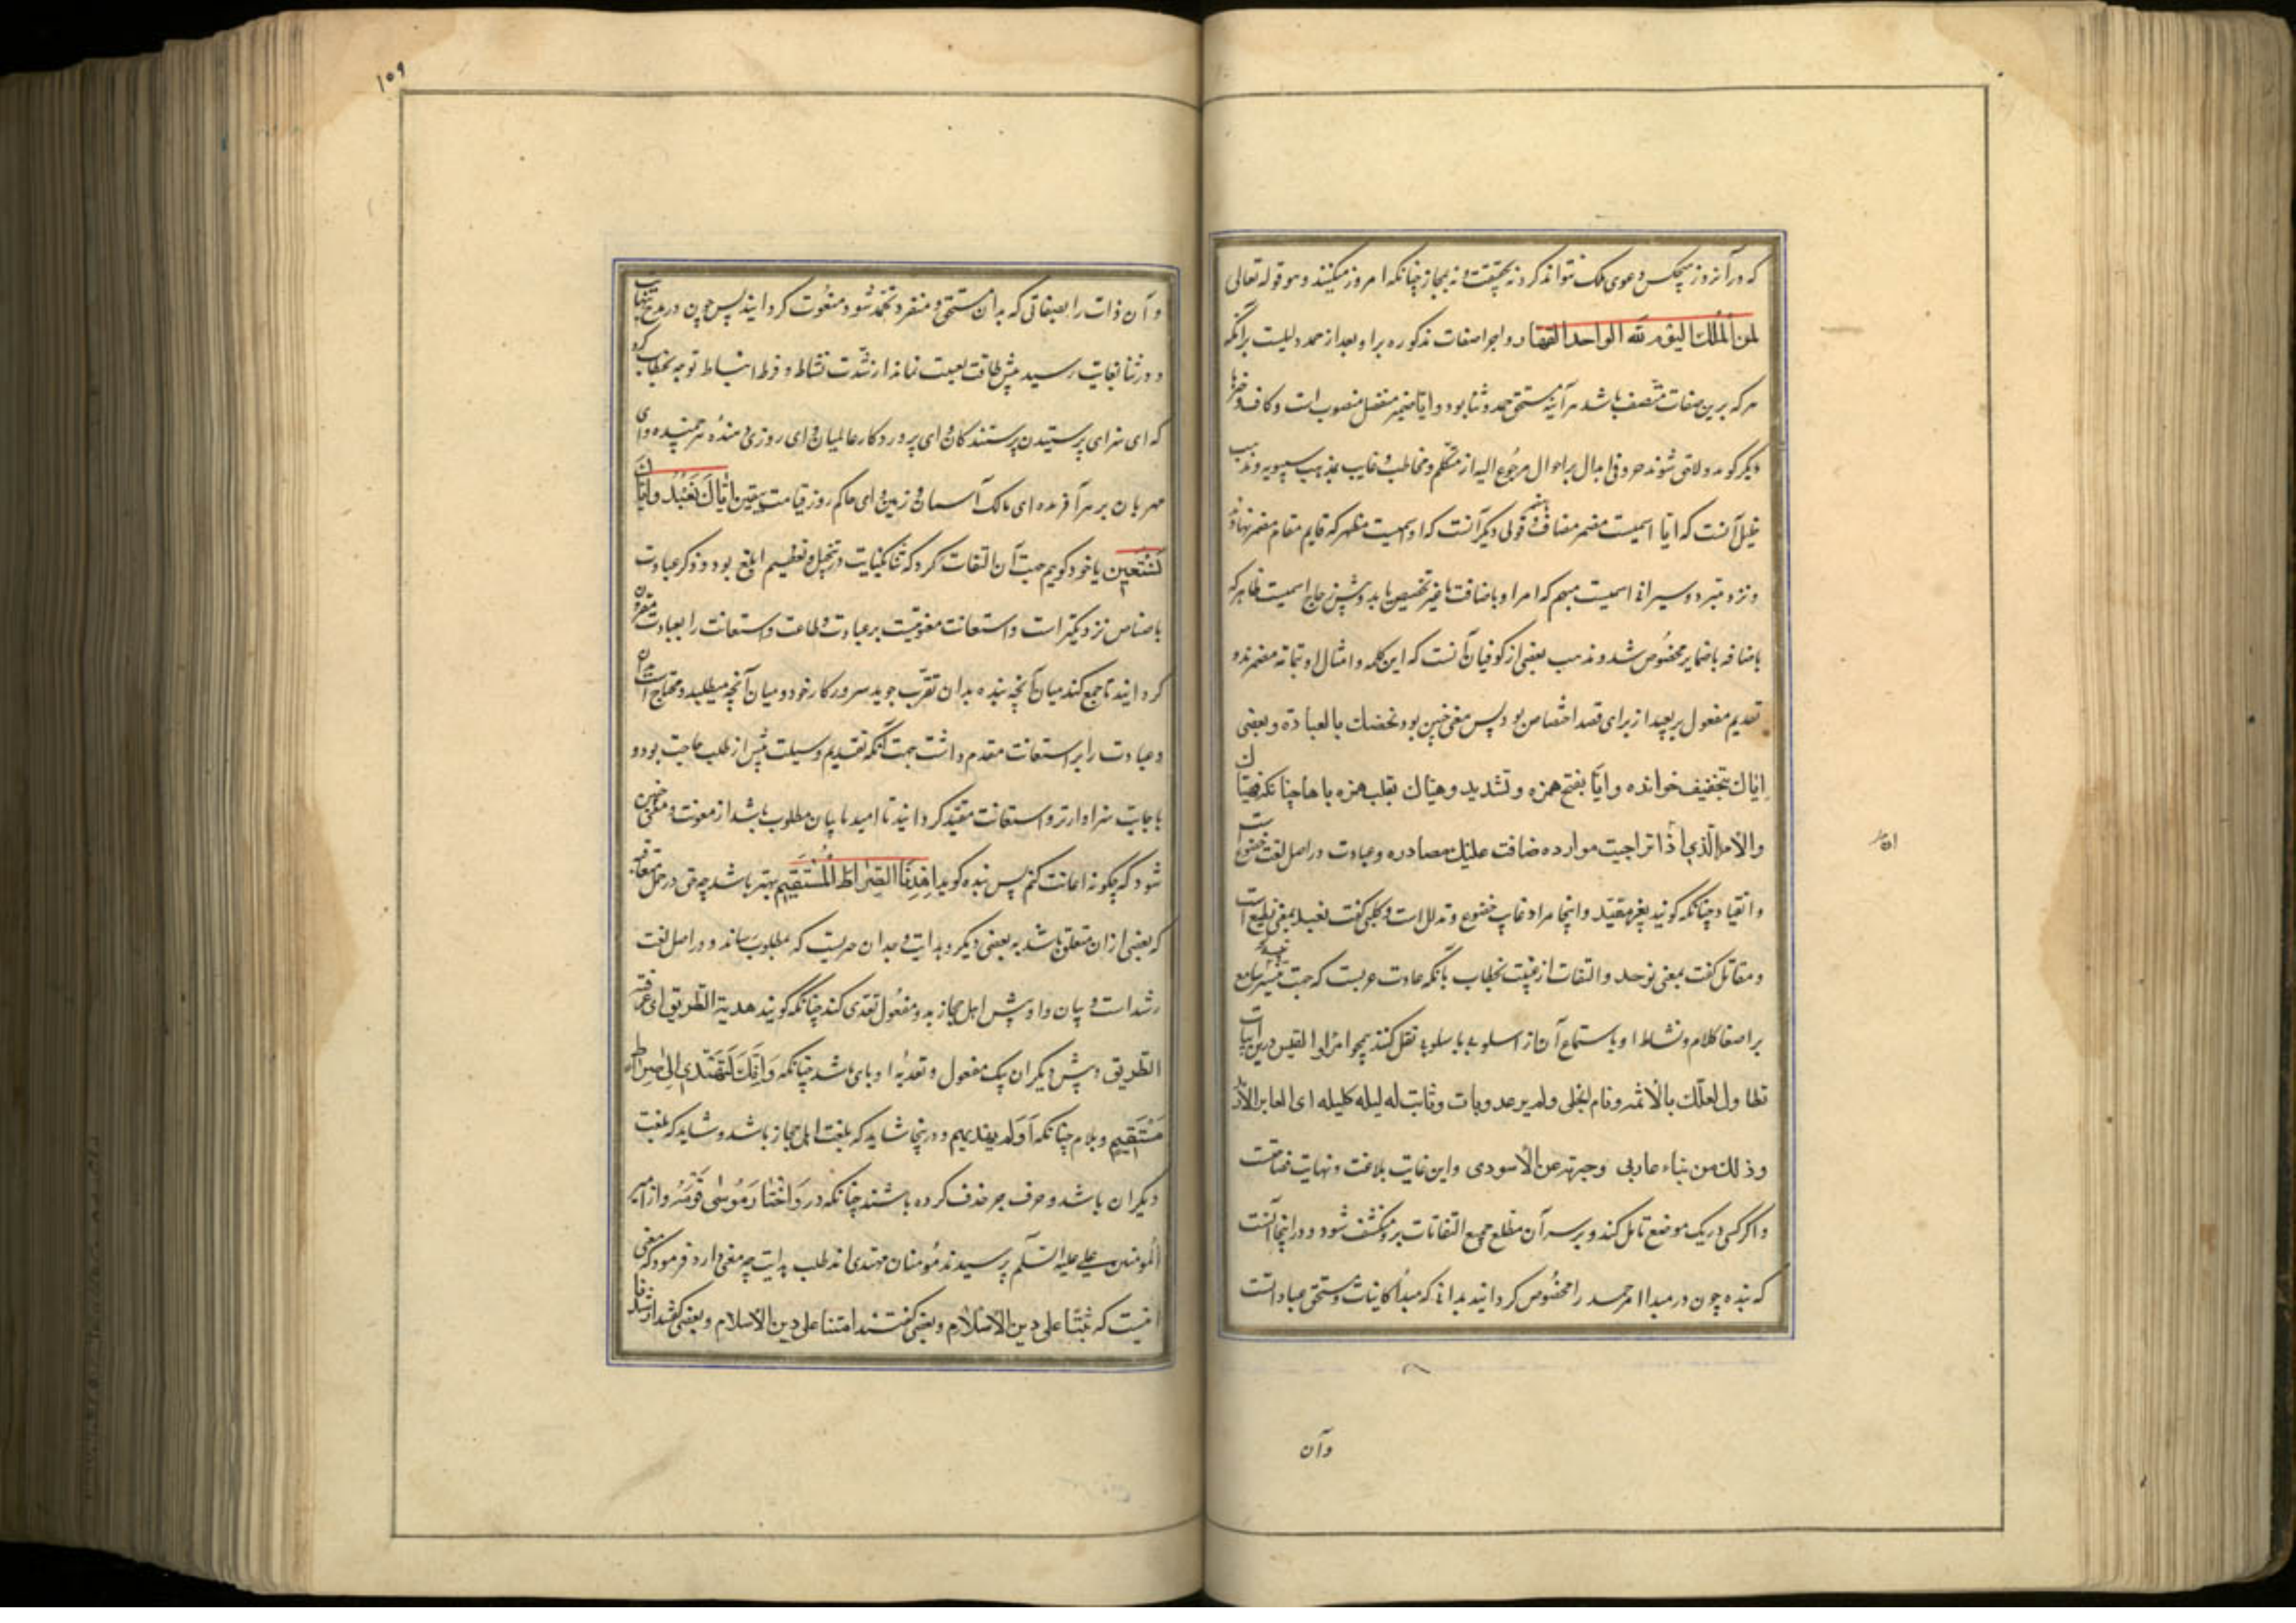 که در آنروز هیچکس دعوی ملک نتواند کرد نه بحقیقت و نه بمجاز چنانکه امروز میکنند و هو قوله تعالی
لمن الملك الیوم لله الواحد القهار و اجرا صفات مذکوره برا و بعد از حمد دلیلست برانکه
هرکه برین صفات متصف باشد هر آینه مستحق حمد و ثنا بود و ایا ضمیر منفصل منصوب است و کاف و
دیگر کویند و لاحق شوند حروفی ابدال بر احوال مرجوع الیه از متکلم و مخاطب و غایب بمذهب سیبویه و مذهب
خلیل آنست که ایا اسمیست مضمر مضاف و قولی دیگر آنست که او اسمیست مظهر که قایم مقام مضمر نهاده
و نزد مبرد و سیرافی اسمیست مبهم که امرا و باضافت تخصیص یابد و پیش زجاج اسمیست ظاهر که
باضافه باضمایر مخصوص شد و مذهب بعضی از کوفیان آنست که این کلمه و امثال او بتمامه مضمرند و
تقدیم مفعول بر نعبد از برای قصد اختصاص بود پس معنی چنین بود نخصك بالعبادة و بعضی
ایاك بتخفیف خوانده و ایا بفتح همزه و تشدید و هیاك بقلب همزه باها چنانکه فهیاك
والامر الذي اذا تراحبت موارده ضاقت علیك مصادره و عبادت در اصل لغت خضوع
و انقیاد چنانکه کویند بعیر معبد و اینجا مراد غایت خضوع و تذلل است و کلبی کفت نعبد بمعنی نطیع است
و مقاتل کفت بمعنی نوحد و التفات از غیبت بخطاب بانکه عادت عربست که جهت سامع
بر اصغا کلام و نشاط او باستماع آن از اسلوبی باسلوبی نقل کنند همچو امرا القیس درین ابیات
تطاول لیلك بالاثمد و نام الخلی ولم یرقد و بات و باتت له لیله کلیله ای العایر الارمد
وذلك من بناء جاءنی وخبرته عن الاسودی و این غایت بلاغت و نهایت فصاحت
و اکر کسی در یک موضع تامل کند و بر سر آن مطلع جمیع التفاتات برو منکشف شود و در اینجا آنست
که بنده چون در مبدا امر حمد را مخصوص کردانید بذاتی که مبدأ کاینات و مستحق عبادتست
وآن
۱۵۹
و آن ذات را بصفاتی که بدان مستحق و منفرد تحمد شود منعوت کردانید پس چون در مدح بنهایت
و در ثنا بغایت رسید پیش طاقت نماند از شدت نشاط و فرط انبساط توجه بخطاب کرد
که ای سزای پرستیدن پرستندکان و ای پروردکار عالمیان و ای روزی دهنده هر جنبنده و ای
مهربان بر هر آفریده ای مالک آسمان و زمین و ای حاکم روز قیامت بیقین ایاك نعبد و ایاك
نستعین یا خود کویم جهت آن التفات کرد که ثنا در تبجیل و تعظیم ابلغ بود و ذکر عبادت
باختصاص نزدیکتر است و استعانت معونیت بر عبادت و طاعت و استعانت را بعبادت مقرون
کردانید تا جمع کند میان آنچه بنده بدان تقرب جوید سرور کار خود و میان آنچه میطلبد و محتاج است بدان
و عبادت را بر استعانت مقدم داشت جهت آنکه تقدیم وسیلت پیش از طلب حاجت بود و
باجابت سزاوارتر و استعانت مقید کردانید تا امید بپایان مطلوب باشد از معونت و معنی چنین
شود که چکونه اعانت کنم پس بنده کوید اهدنا الصراط المستقیم بهتر باشد چه حق در حمل
که بعضی از ان متعلق باشد به بعضی دیکر و هدایت وجدان چیزیست که بمطلوب رساند و در اصل لغت
رشد است و بیان و او پیش اهل حجاز بدو مفعول تعدی کند چنانکه کویند هدیته الطریق ای عرفته
الطریق و پیش دیکران یک مفعول و تعدیه او بالی باشد چنانکه وانك لتهدی الی صراط
مستقیم و بلام چنانکه اولم یهد لهم و در اینجا شاید که بلغت اهل حجاز باشد و شاید که بلغت
دیکران باشد و حرف جر حذف کرده باشند چنانکه در واختار موسی قومه و از امیر
المومنین علی علیه السلم پرسیدند مؤمنان مهتدی اند طلب هدایت چه معنی دارد فرمود که معنی
اینست که ثبتنا علی دین الاسلام و بعضی کفتند امتنا علی دین الاسلام و بعضی کفتند ارشدنا